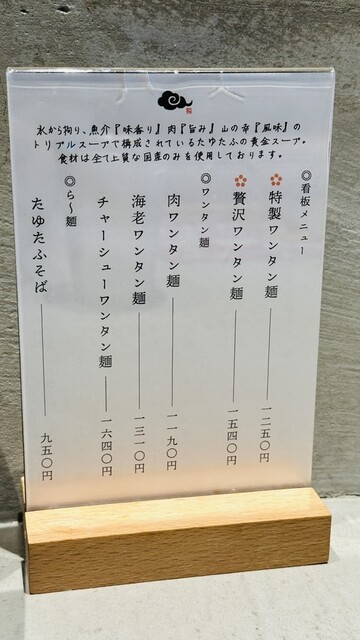 水から拘り、魚介『味香り』肉『旨み』山の幸『風味』の
トリプルスープで構成されているたゆたふの黄金スープ。
食材は全て上質な国産のみを使用しております。
◎看板メニュー
特製ワンタン麺 一二五〇円
贅沢ワンタン麺 一五四〇円
◎ワンタン麺
肉ワンタン麺 一一九〇円
海老ワンタン麺 一三一〇円
チャーシューワンタン麺 一六四〇円
◎ら〜麺
たゆたふそば 九五〇円